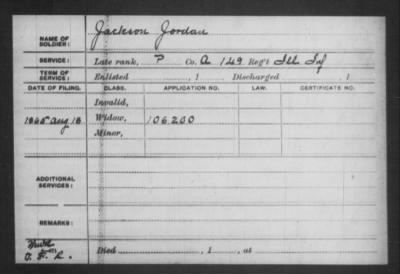 NAME OF SOLDIER: Jackson Jordan
SERVICE: Late rank, P Co. A 149 Reg't Ill Inf
TERM OF SERVICE: Enlisted , 1 Discharged , 1
DATE OF FILING. CLASS. APPLICATION NO. LAW. CERTIFICATE NO.
Invalid,
1865 Aug 18 Widow, 106200
Minor,
ADDITIONAL SERVICES:
REMARKS:
Died , 1 , at